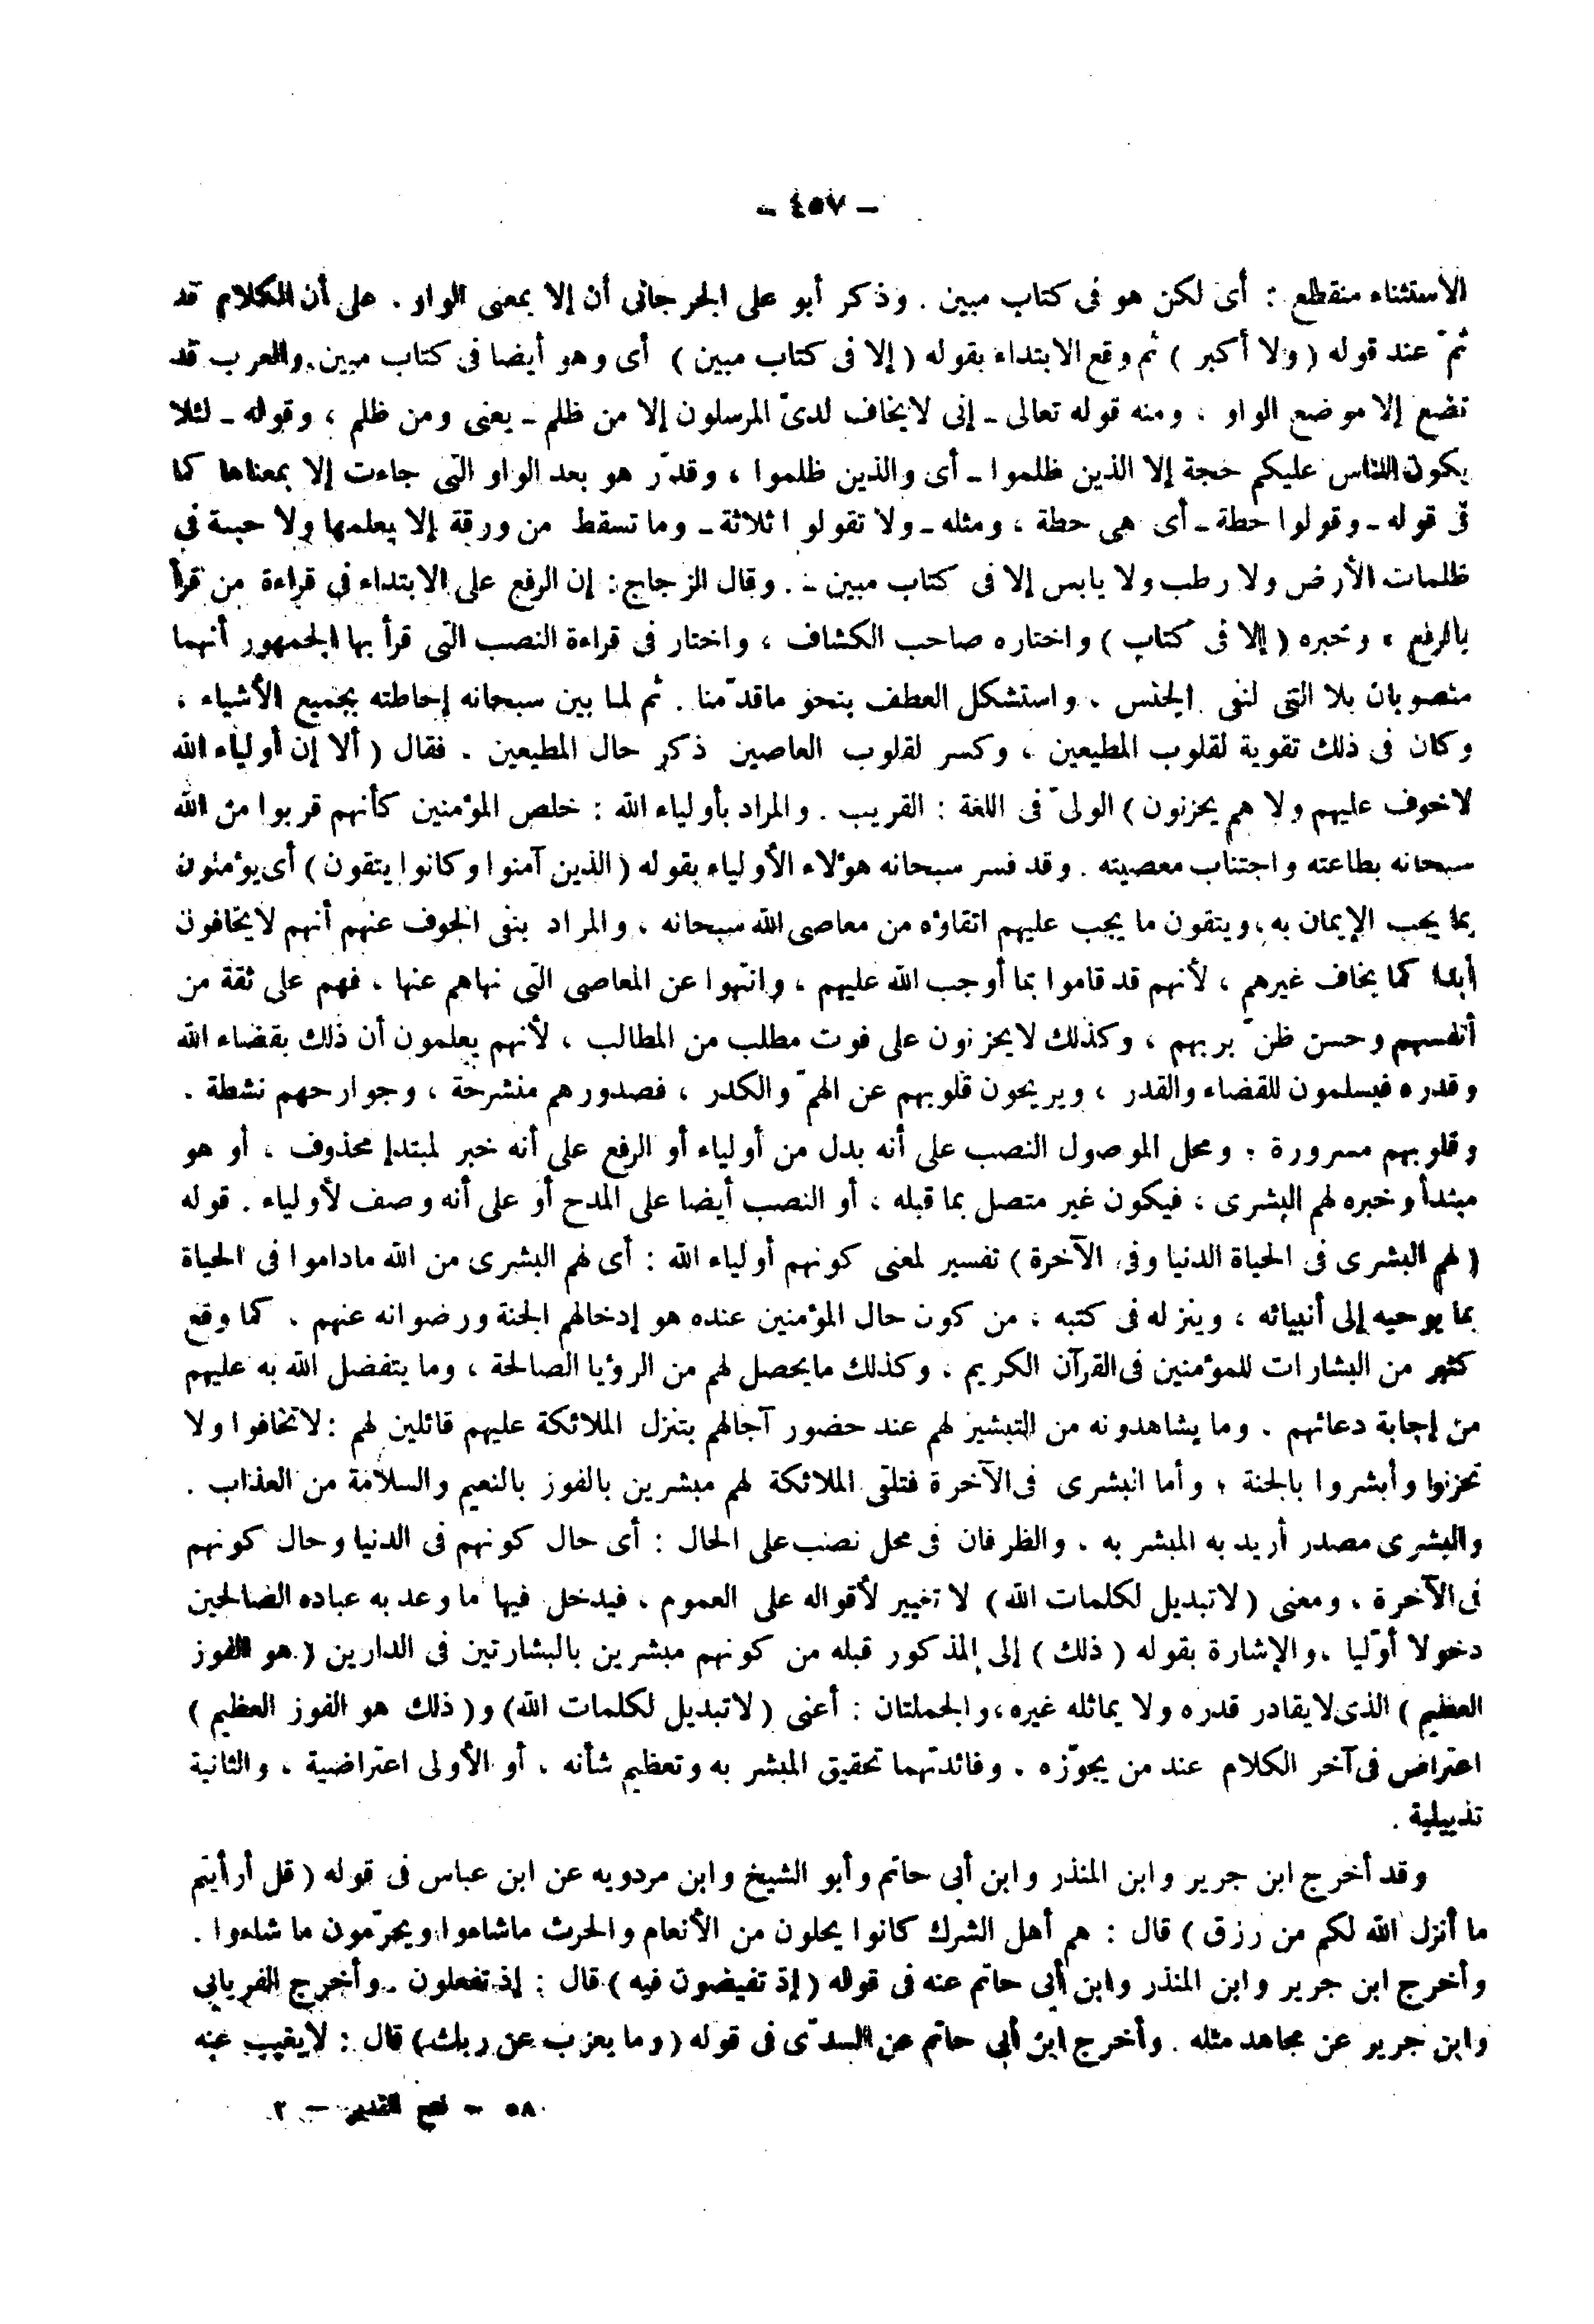 - ٤٥٧ -
الاستثناء منقطع : أى لكن هو فى كتاب مبين . وذكر أبو على الجرجانى أن إلا بمعنى الواو . على أن الكلام قد
تمّ عند قوله ( ولا أكبر ) ثم وقع الابتداء بقوله ( إلا فى كتاب مبين ) أى وهو أيضا فى كتاب مبين . والعرب قد
تضع إلا موضع الواو ، ومنه قوله تعالى - إنى لايخاف لدىّ المرسلون إلا من ظلم - يعنى ومن ظلم ، وقوله - لئلا
يكون للناس عليكم حجة إلا الذين ظلموا - أى والذين ظلموا ، وقدّر هو بعد الواو التى جاءت إلا بمعناها كما
فى قوله - وقولوا حطة - أى هى حطة ، ومثله - ولا تقولوا ثلاثة - وما تسقط من ورقة إلا يعلمها ولا حبة فى
ظلمات الأرض ولا رطب ولا يابس إلا فى كتاب مبين - . وقال الزجاج : إن الرفع على الابتداء فى قراءة من قرأ
بالرفع ، وخبره ( إلا فى كتاب ) واختاره صاحب الكشاف ، واختار فى قراءة النصب التى قرأ بها الجمهور أنهما
منصوبان بلا التى لنفى الجنس ، واستشكل العطف بنحو ماقدّمنا . ثم لما بين سبحانه إحاطته بجميع الأشياء ،
وكان فى ذلك تقوية لقلوب المطيعين ، وكسر لقلوب العاصين ذكر حال المطيعين . فقال ( ألا إن أولياء الله
لاخوف عليهم ولا هم يحزنون ) الولىّ فى اللغة : القريب . والمراد بأولياء الله : خلص المؤمنين كأنهم قربوا من الله
سبحانه بطاعته واجتناب معصيته . وقد فسر سبحانه هؤلاء الأولياء بقوله ( الذين آمنوا وكانوا يتقون ) أى يؤمنون
بما يجب الإيمان به ، ويتقون ما يجب عليهم اتقاؤه من معاصى الله سبحانه ، والمراد بنفى الخوف عنهم أنهم لايخافون
أبدا كما يخاف غيرهم ، لأنهم قد قاموا بما أوجب الله عليهم ، وانتهوا عن المعاصى التى نهاهم عنها ، فهم على ثقة من
أنفسهم وحسن ظنّ بربهم ، وكذلك لايحزنون على فوت مطلب من المطالب ، لأنهم يعلمون أن ذلك بقضاء الله
وقدره فيسلمون للقضاء والقدر ، ويريحون قلوبهم عن الهمّ والكدر ، فصدورهم منشرحة ، وجوارحهم نشطة .
وقلوبهم مسرورة ؛ ومحل الموصول النصب على أنه بدل من أولياء أو الرفع على أنه خبر لمبتدإ محذوف ، أو هو
مبتدأ وخبره لهم البشرى ، فيكون غير متصل بما قبله ، أو النصب أيضا على المدح أو على أنه وصف لأولياء . قوله
( لهم البشرى فى الحياة الدنيا وفى الآخرة ) تفسير لمعنى كونهم أولياء الله : أى لهم البشرى من الله ماداموا فى الحياة
بما يوحيه إلى أنبيائه ، وينزله فى كتبه ، من كون حال المؤمنين عنده هو إدخالهم الجنة ورضوانه عنهم . كما وقع
كثير من البشارات للمؤمنين فى القرآن الكريم . وكذلك مايحصل لهم من الرؤيا الصالحة ، وما يتفضل الله به عليهم
من إجابة دعائهم . وما يشاهدونه من التبشير لهم عند حضور آجالهم بتنزل الملائكة عليهم قائلين لهم : لاتخافوا ولا
تحزنوا وأبشروا بالجنة ؛ وأما البشرى فى الآخرة فتلقى الملائكة لهم مبشرين بالفوز بالنعيم والسلامة من العذاب .
والبشرى مصدر أريد به المبشر به . والظرفان فى محل نصب على الحال : أى حال كونهم فى الدنيا وحال كونهم
فى الآخرة . ومعنى ( لاتبديل لكلمات الله ) لا تغيير لأقواله على العموم . فيدخل فيها ما وعد به عباده الصالحين
دخولا أوّليا ، والإشارة بقوله ( ذلك ) إلى المذكور قبله من كونهم مبشرين بالبشارتين فى الدارين ( هو الفوز
العظيم ) الذى لايقادر قدره ولا يماثله غيره ، والجملتان : أعنى ( لاتبديل لكلمات الله ) و( ذلك هو الفوز العظيم )
اعتراض فى آخر الكلام عند من يجوّزه . وفائدتهما تحقيق المبشر به وتعظيم شأنه . أو الأولى اعتراضية ، والثانية
تذييلية .
وقد أخرج ابن جرير وابن المنذر وابن أبى حاتم وأبو الشيخ وابن مردويه عن ابن عباس فى قوله ( قل أرأيتم
ما أنزل الله لكم من رزق ) قال : هم أهل الشرك كانوا يحلون من الأنعام والحرث ماشاءوا ويحرّمون ما شاءوا .
وأخرج ابن جرير وابن المنذر وابن أبى حاتم عنه فى قوله ( إذ تفيضون فيه ) قال : إذ تفعلون . وأخرج الفريابى
وابن جرير عن مجاهد مثله . وأخرج ابن أبى حاتم عن السدّى فى قوله ( وما يعزب عن ربك ) قال : لايغيب عنه
٥٨ - فتح القدير - ٢